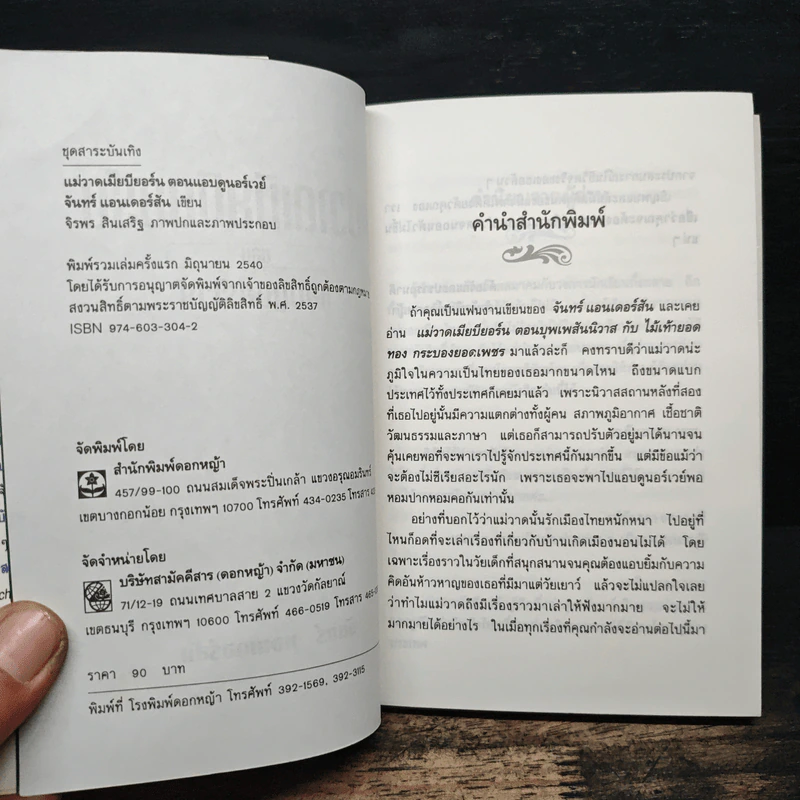 ชุดสาระบันเทิง
แม่วาดเมียบียอร์น ตอนแอบดูนอร์เวย์
จันทร์ แอนเดอร์สัน เขียน
จิรพร สินเสริฐ ภาพปกและภาพประกอบ
พิมพ์รวมเล่มครั้งแรก มิถุนายน 2540
โดยได้รับการอนุญาตจัดพิมพ์จากเจ้าของลิขสิทธิ์ถูกต้องตามกฎหมาย
สงวนสิทธิ์ตามพระราชบัญญัติลิขสิทธิ์ พ.ศ. 2537
ISBN 974-603-304-2
จัดพิมพ์โดย
สำนักพิมพ์ดอกหญ้า
457/99-100 ถนนสมเด็จพระปิ่นเกล้า แขวงอรุณอมรินทร์
เขตบางกอกน้อย กรุงเทพฯ 10700 โทรศัพท์ 434-0235 โทรสาร
จัดจำหน่ายโดย
บริษัทสามัคคีสาร (ดอกหญ้า) จำกัด (มหาชน)
71/12-19 ถนนเทศบาลสาย 2 แขวงวัดกัลยาณ์
เขตธนบุรี กรุงเทพฯ 10600 โทรศัพท์ 466-0519 โทรสาร
ราคา 90 บาท
พิมพ์ที่ โรงพิมพ์ดอกหญ้า โทรศัพท์ 392-1569, 392-3115
คำนำสำนักพิมพ์
ถ้าคุณเป็นแฟนงานเขียนของ จันทร์ แอนเดอร์สัน และเคย
อ่าน แม่วาดเมียบียอร์น ตอนบุพเพสันนิวาส กับ ไม้เท้ายอด
ทอง กระบองยอดเพชร มาแล้วล่ะก็ คงทราบดีว่าแม่วาดน่ะ
ภูมิใจในความเป็นไทยของเธอมากขนาดไหน ถึงขนาดแบก
ประเทศไว้ทั้งประเทศก็เคยมาแล้ว เพราะนิวาสสถานหลังที่สอง
ที่เธอไปอยู่นั้นมีความแตกต่างทั้งผู้คน สภาพภูมิอากาศ เชื้อชาติ
วัฒนธรรมและภาษา แต่เธอก็สามารถปรับตัวอยู่มาได้นานจน
คุ้นเคยพอที่จะพาเราไปรู้จักประเทศนี้กันมากขึ้น แต่มีข้อแม้ว่า
จะต้องไม่ซีเรียสอะไรนัก เพราะเธอจะพาไปแอบดูนอร์เวย์พอ
หอมปากหอมคอกันเท่านั้น
อย่างที่บอกไว้ว่าแม่วาดนั้นรักเมืองไทยหนักหนา ไปอยู่ที่
ไหนก็อดที่จะเล่าเรื่องที่เกี่ยวกับบ้านเกิดเมืองนอนไม่ได้ โดย
เฉพาะเรื่องราวในวัยเด็กที่สนุกสนานจนคุณต้องแอบยิ้มกับความ
คิดอันห้าวหาญของเธอที่มีมาแต่วัยเยาว์ แล้วจะไม่แปลกใจเลย
ว่าทำไมแม่วาดถึงมีเรื่องราวมาเล่าให้ฟังมากมาย จะไม่ให้
มากมายได้อย่างไร ในเมื่อทุกเรื่องที่คุณกำลังจะอ่านต่อไปนี้มา